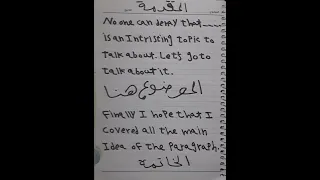 المقدمة
No one can deny that......
is an Intrissting topic to
talk about. Let's go to
talk about it.
الموضوع هنا
Finally I hope that I
covered all the main
Idea of the Paragraph.
الخاتمة